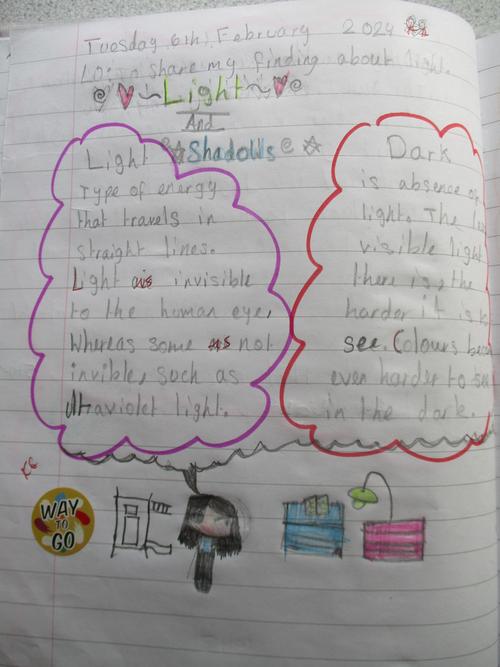 Tuesday 6th February 2024
LO: to share my finding about light.
Light
And
Shadows
Light
Type of energy
that travels in
straight lines.
Light is invisible
to the human eye,
whereas some is not
invible, such as
ultraviolet light.
Dark
is absence of
light. The
visible light
there is, the
harder it is to
see. Colours
even harder to see
in the dark.
WAY
TO
GO